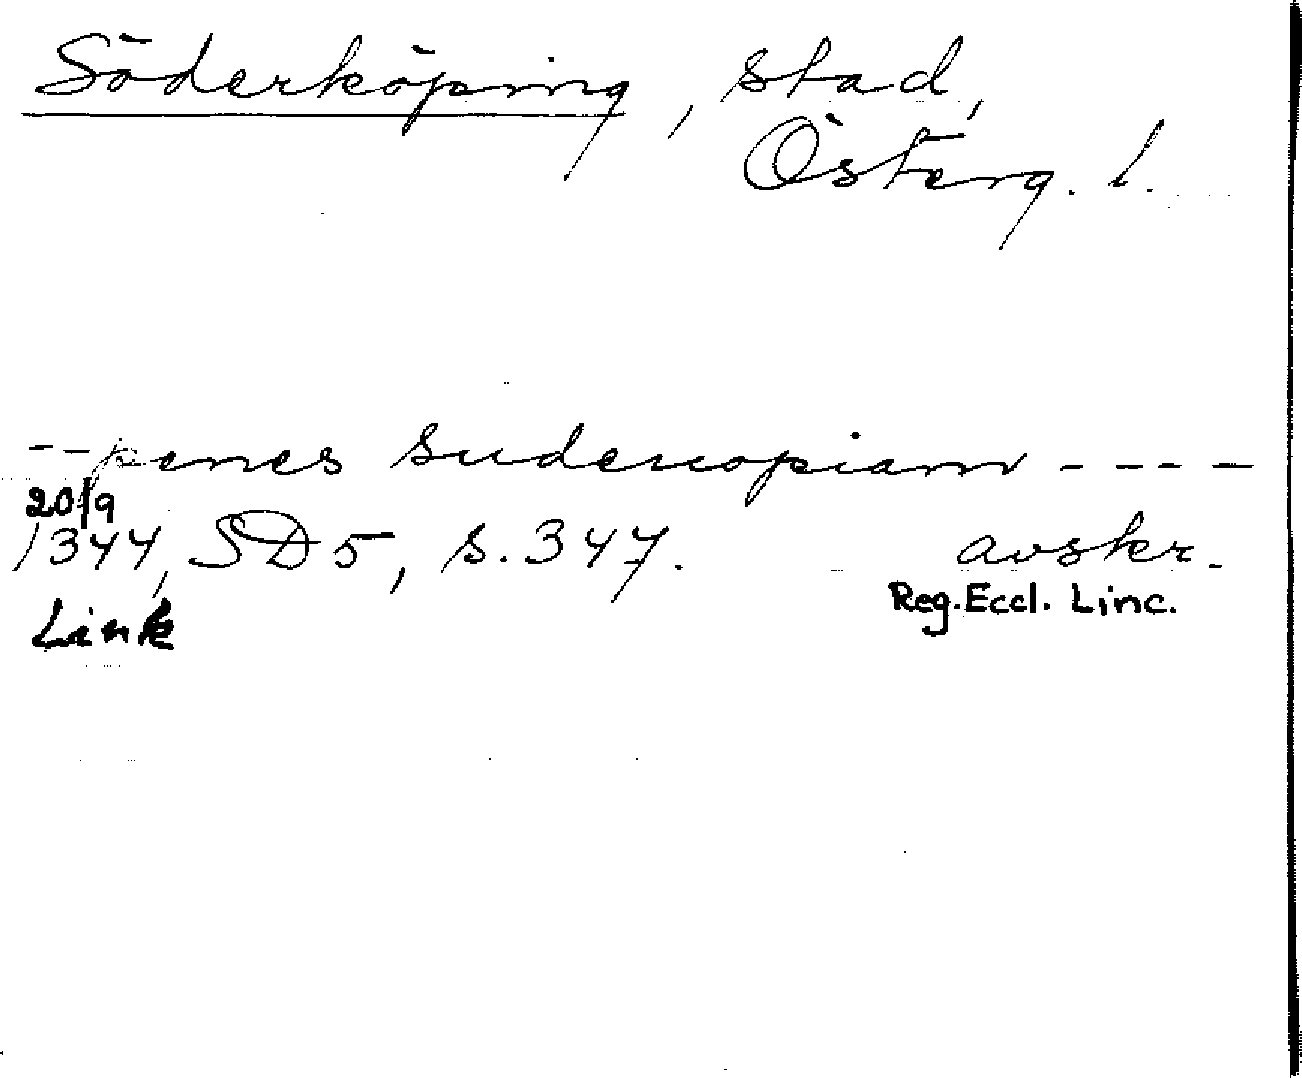 Söderköping, stad,
Österg. l.
--penes sudercopiam ----
20/9
1344, SD 5, s. 347. avskr.
Reg. Eccl. Linc.
Link